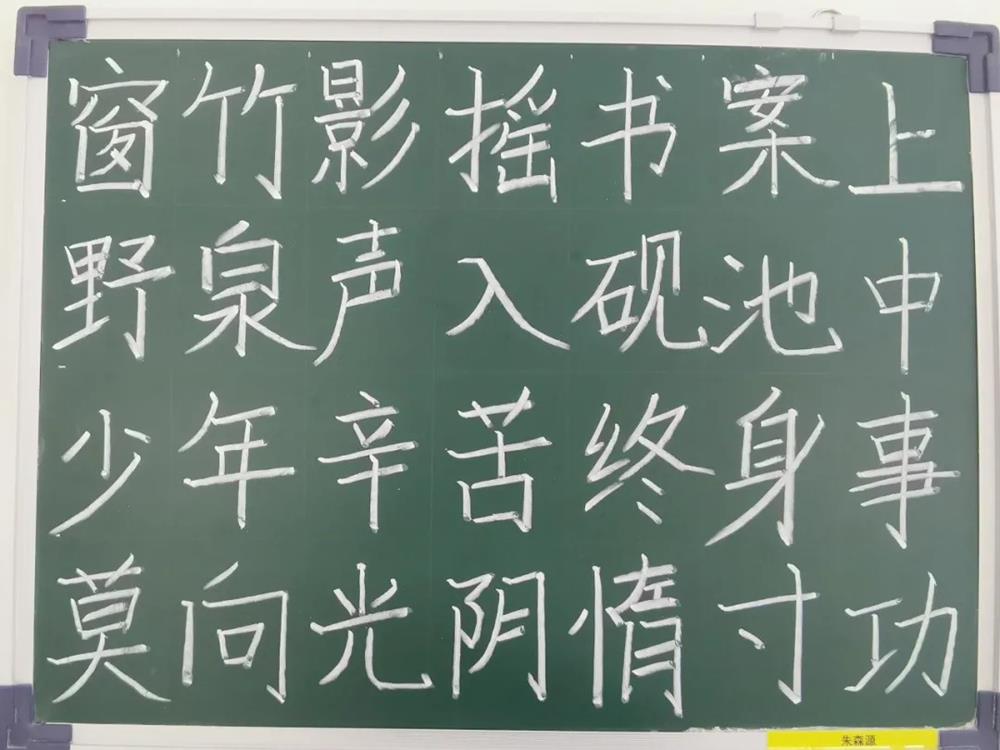 窗竹影摇书案上
野泉声入砚池中
少年辛苦终身事
莫向光阴惰寸功
朱森源